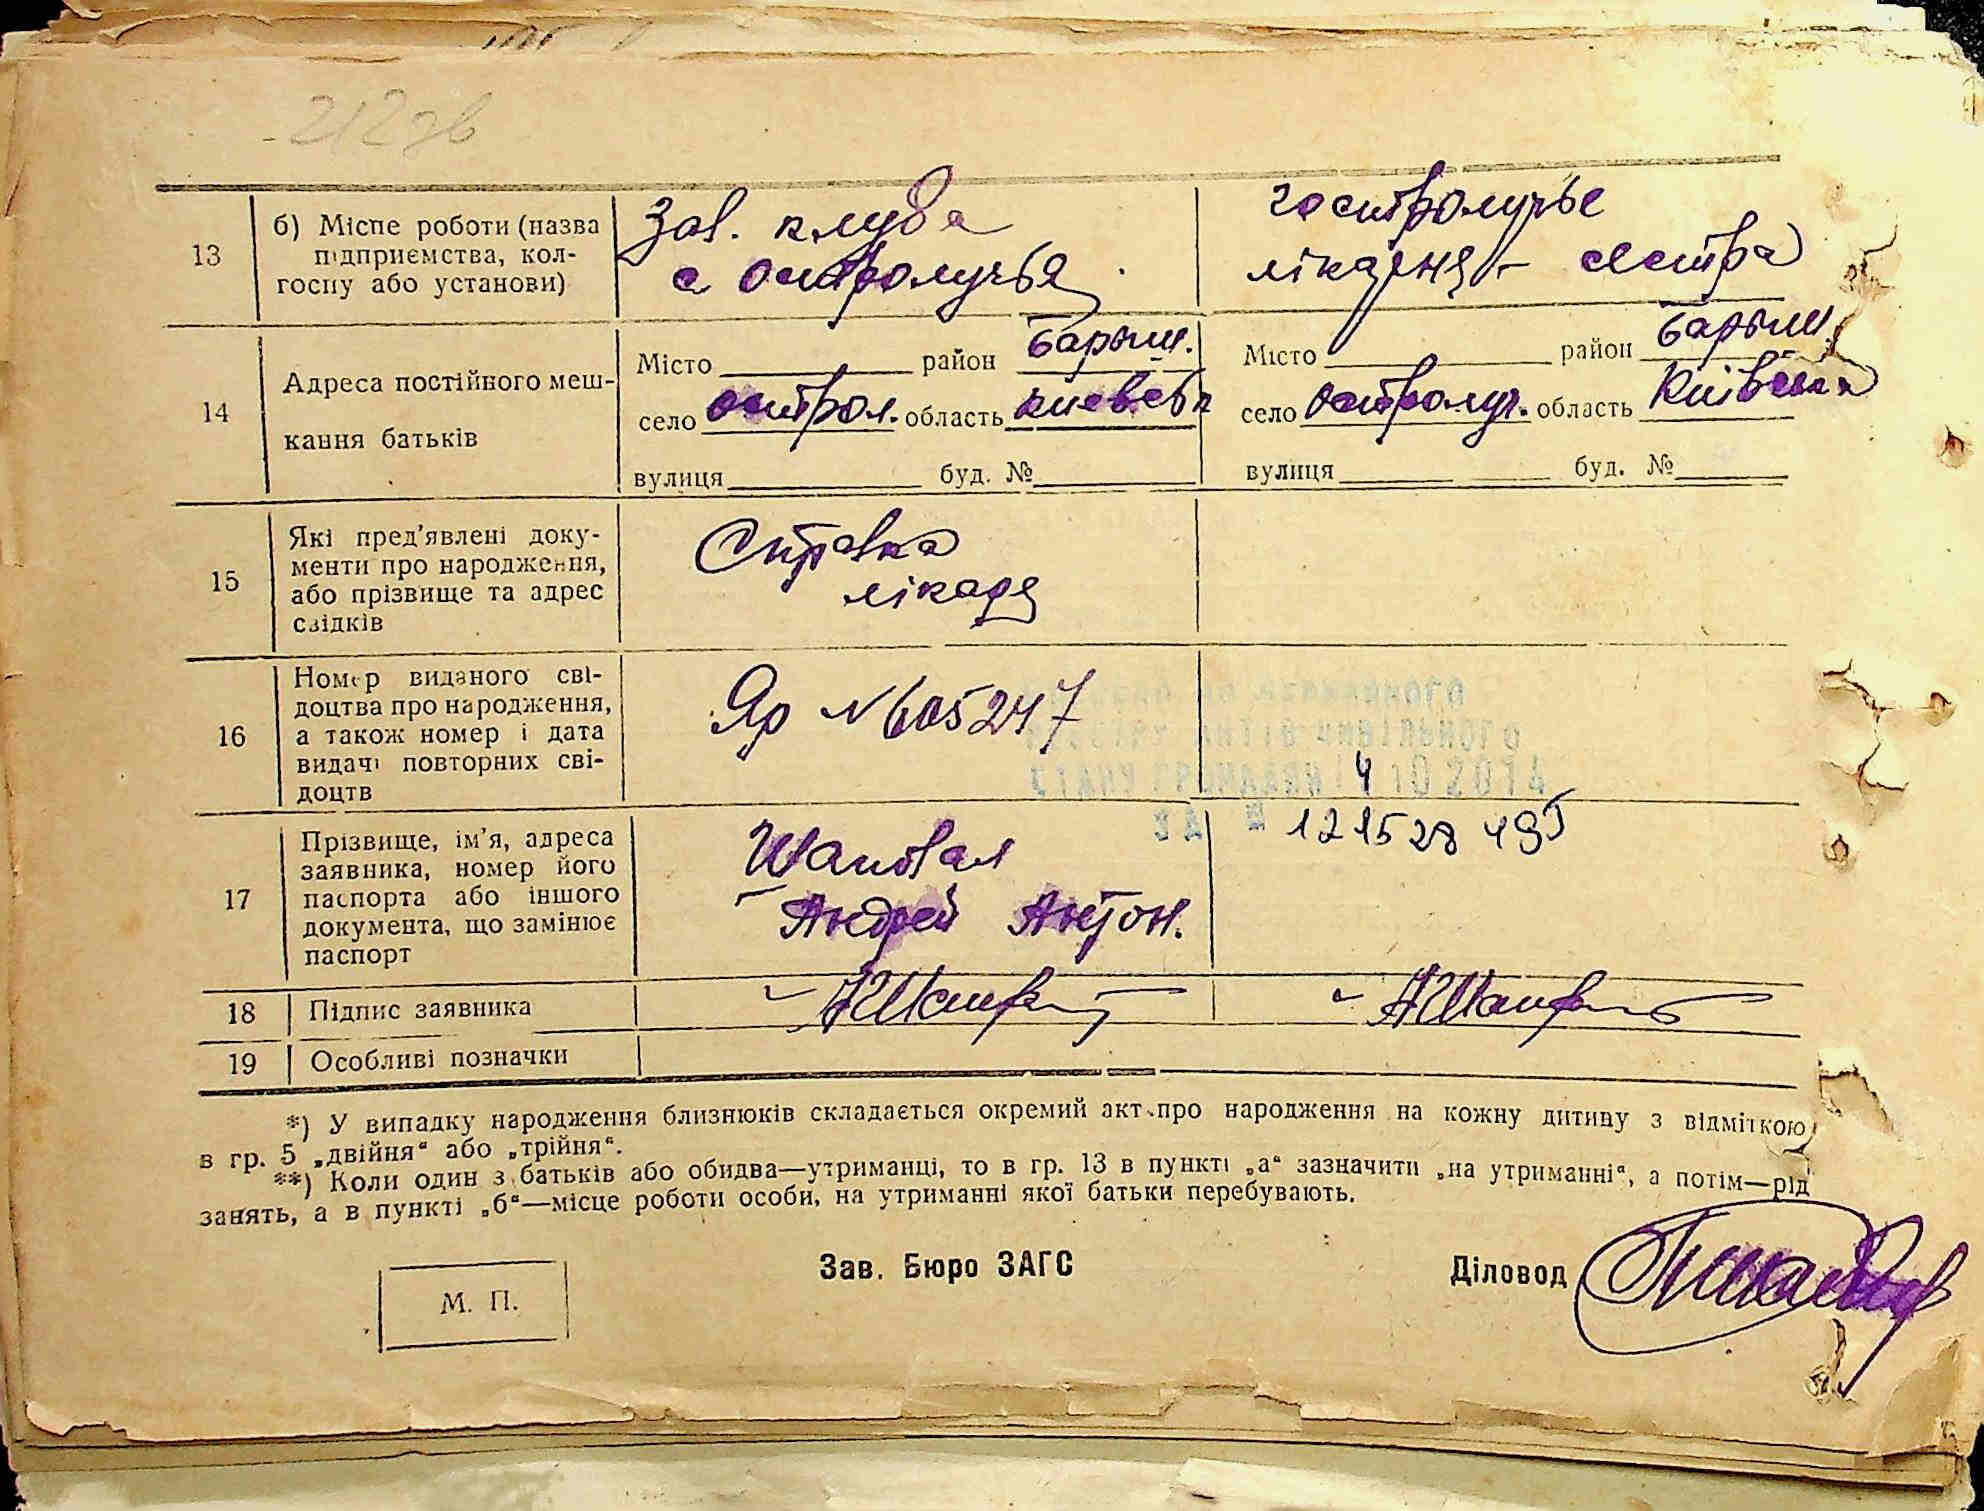 212зв
13
б) Місце роботи (назва
підприємства, кол-
госпу або установи)
Зав. клуба
с Остролучья
гостролучье
лікарня – сестра
14
Адреса постійного меш-
кання батьків
Місто район Барыш.
село Острол. область Киевськ
вулиця буд. №
Місто район Барыш.
село Остролуч. область Київська
вулиця буд. №
15
Які пред'явлені доку-
менти про народження,
або прізвище та адрес
свідків
Справка
лікаря
16
Номер виданого сві-
доцтва про народження,
а також номер і дата
видачі повторних сві-
доцтв
Яр №605247
Державного
реєстру актів цивільного
стану громадян 4 10 2014
за №
121528495
17
Прізвище, ім'я, адреса
заявника, номер його
паспорта або іншого
документа, що замінює
паспорт
Шаповал
Андрей Антон.
18
Підпис заявника
АШаповал
АШаповал
19
Особливі позначки
*) У випадку народження близнюків складається окремий акт про народження на кожну дитину з відміткою
в гр. 5 „двійня“ або „трійня“.
**) Коли один з батьків або обидва—утриманці, то в гр. 13 в пункті „а“ зазначити „на утриманні“, а потім—рід
занять, а в пункті „б“—місце роботи особи, на утриманні якої батьки перебувають.
Зав. Бюро ЗАГС
Діловод
М. П.